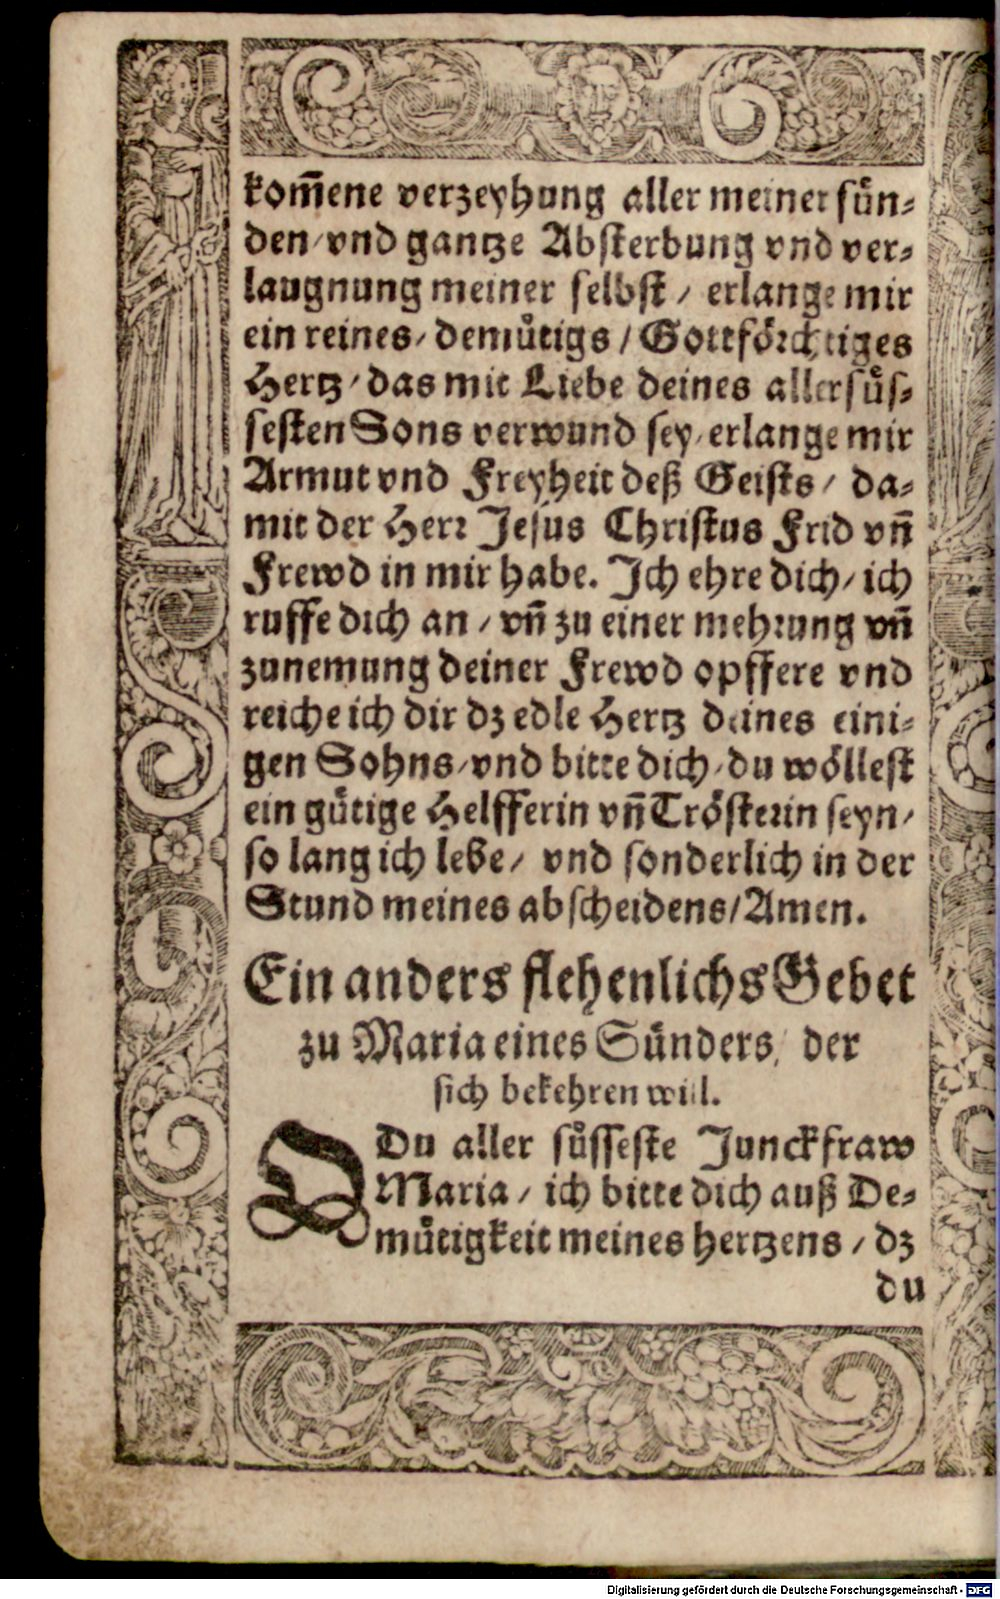 kom̃ene verzeyhung aller meiner sün-
den/vnd gantze Absterbung vnd ver-
laugnung meiner selbst / erlange mir
ein reines/demuͤtigs / Gottfoͤrchtiges
Hertz/das mit Liebe deines allersuͤs-
sesten Sons verwund sey/erlange mir
Armut vnd Freyheit deß Geists/ da-
mit der Herr Jesus Christus Frid vñ
Frewd in mir habe. Ich ehre dich/ich
ruffe dich an / vñ zu einer mehrung vñ
zunemung deiner Frewd opffere vnd
reiche ich dir dz edle Hertz deines eini-
gen Sohns/vnd bitte dich/du woͤllest
ein guͤtige Helfferin vñ Troͤsterin seyn/
so lang ich lebe/ vnd sonderlich in der
Stund meines abscheidens/Amen.
Ein anders flehenlichs Gebet
zu Maria eines Sünders, der
sich bekehren will.
O Du aller suͤsseste Junckfraw
Maria / ich bitte dich auß De-
muͤtigkeit meines hertzens / dz
du
Digitalisierung gefördert durch die Deutsche Forschungsgemeinschaft - DFG